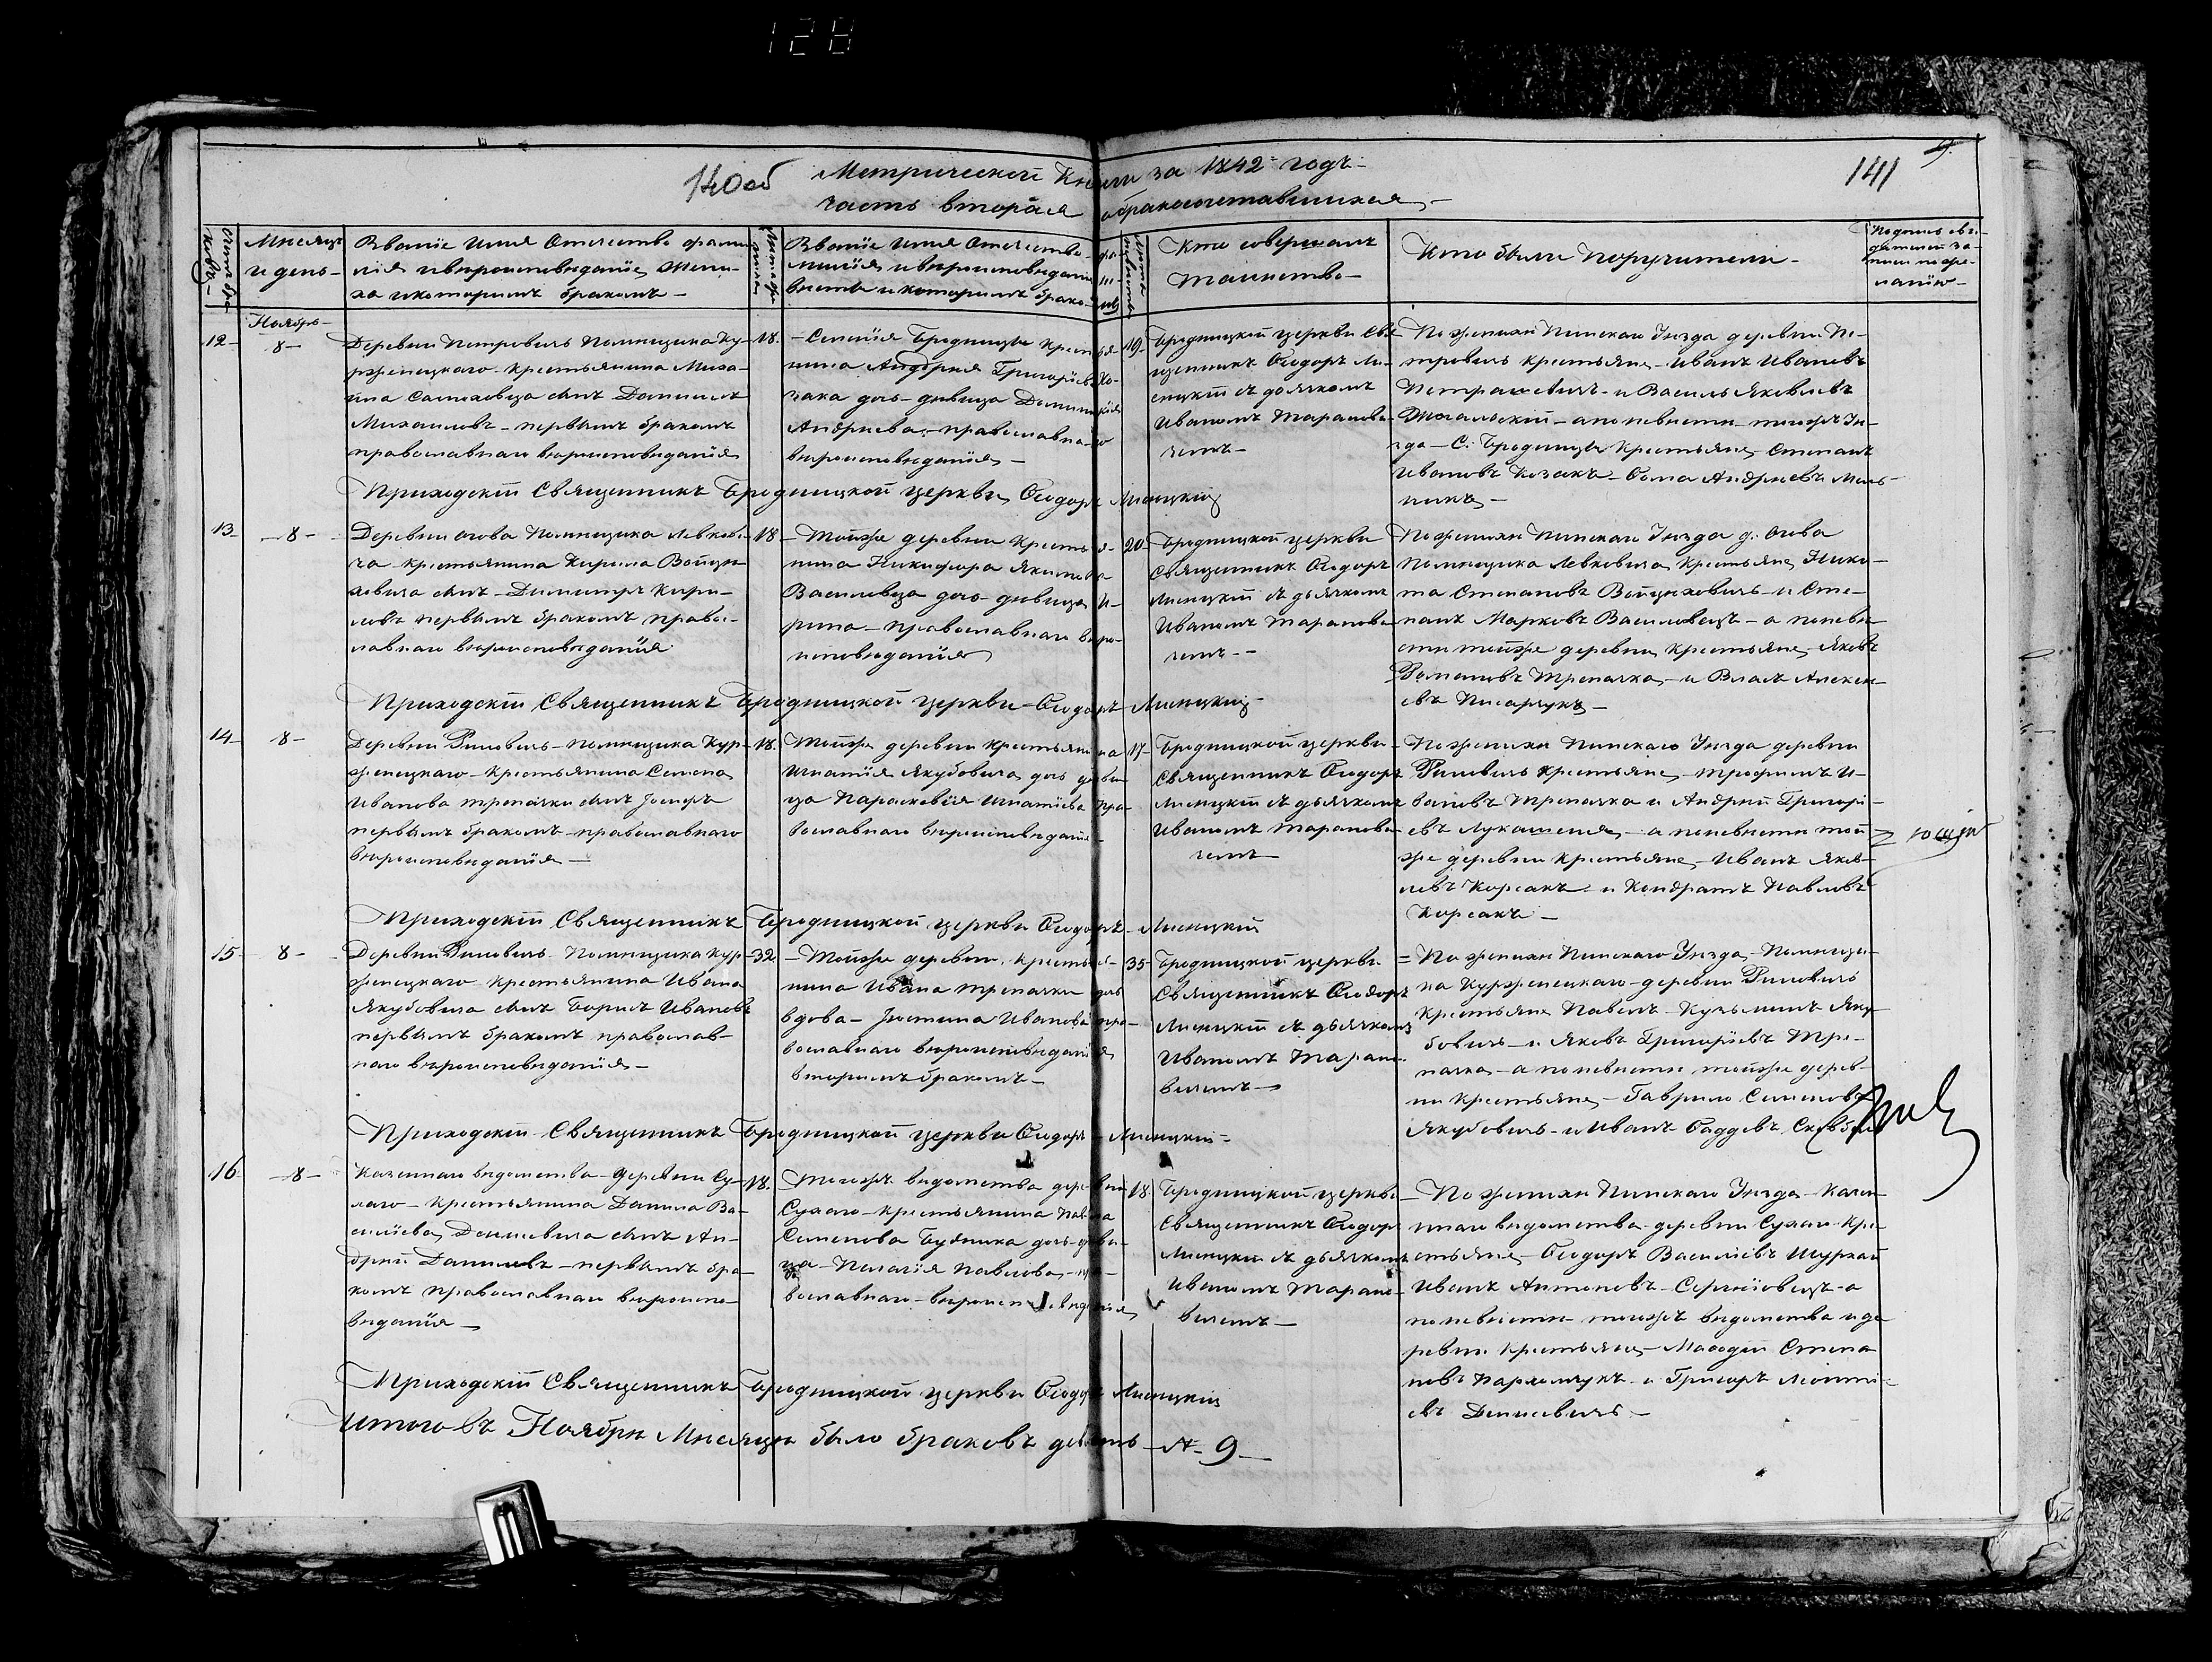 128
140об
Метрической Книги за 1842 годъ
часть вторая обракосочетавшихся
141
Месяцъ и день
Званіе Имя Отечество фами-
лія и вероисповеданіе Жени-
ха и которымъ бракомъ
Званіе имя Отечество фа-
милія и вероисповеданіе
невесты и которымъ бракомъ
Кто совершалъ
таинство
Кто были поручители
12
Ноябрь
8
Деревни Петровичь Помещика Ку-
рженецкаго крестьянина Миха-
ила сынъ Даниилъ
Михаиловъ первымъ бракомъ
православнаго вероисповеданія
18
Селенія Бродницы крестья-
нина Андрея Григорієва Ко-
зака дочь девица
Андреева православнаго
вероисповеданія
19
Бродницкой церкви Свя-
щенникъ Ѳеодоръ Ли-
сицкій съ дьячкомъ
Иваномъ Таранове-
чемъ
По женихе Пинскаго Уезда деревни Пе-
тровичь крестьяне Иванъ Ивановъ
Петрашевичъ и Василь Яковлевъ
а по невесте тогожъ Уе-
зда С. Бродницы Крестьяне Степанъ
Ивановъ Козакъ Ѳома Андреевъ Мель-
никъ
Приходскій Священникъ Бродницкой церкви Ѳеодоръ Лисицкій
13
8
Деревни Огова Помещика Левкови-
ча крестьянина Кирила Войце-
ховича сынъ Димитръ Кири-
ловъ первымъ бракомъ право-
славнаго вероисповеданія
18
Тойже деревни Крестья-
нина Никифора Якимова
Василевца дочь девица И-
рина православнаго веро-
исповеданія
20
Бродницкой церкви
Священникъ Ѳеодоръ
Лисицкій съ дьячкомъ
Иваномъ Таранове-
чемъ
По женихе Пинскаго Уезда д. Огова
помещика Левковича Крестьяне Ники-
та Степановъ Войцеховичь и Сте-
панъ Марковъ Василовецъ а по неве-
сте тойже деревни крестьяне Яковъ
Романовъ Трепачка и Власъ Алексе-
евъ Писарчукъ
Приходскій Священникъ Бродницкой церкви Ѳеодоръ Лисицкій
14
8
Деревни Риловичь помещика Кур-
женецкаго крестьянина Семена
Иванова Трепачки сынъ Іосифъ
первымъ бракомъ православнаго
вероисповеданія
18
Тойже деревни крестьянина
Игнатія Якубовича дочь деви-
ца Параскевія Игнатіева пра-
вославнаго вероисповеданія
17
Бродницкой церкви
Священникъ Ѳеодоръ
Лисицкій съ дьячкомъ
Иваномъ Таранове-
чемъ
По женихе Пинскаго Уезда деревни
Риловичь крестьяне Трофимъ И-
вановъ Трепачка и Андрей Григорі-
евъ Лукашеня а по невесте той-
же деревни крестьяне Иванъ Яков-
левъ Корсакъ и Кондратъ Павловъ
Корсакъ
Приходскій Священникъ Бродницкой церкви Ѳеодоръ Лисицкій
15
8
Деревни Риловичь Помещика Кур-
женецкаго Крестьянина Ивана
Якубовича сынъ Борисъ Ивановъ
первымъ бракомъ православ-
наго вероисповеданія
32
Тойже деревни крестья-
нина Ивана Трепачки дочь
вдова Іустина Иванова пра-
вославнаго вероисповеданія
вторымъ бракомъ
35
Бродницкой церкви
Священникъ Ѳеодоръ
Лисицкій съ дьячкомъ
Иваномъ Тарано-
вечемъ
По женихе Пинскаго Уезда Помещи-
ка Курженецкаго деревни Риловичь
Крестьяне Павелъ Кузьминъ Яку-
бовичь и Яковъ Григорієвъ Тре-
пачка а по невесте тойже дерев-
ни крестьяне Гаврило Семеновъ
Якубовичь и Иванъ Ѳаддеевъ
Приходскій Священникъ Бродницкой церкви Ѳеодоръ Лисицкій
16
8
Казеннаго ведомства деревни Су-
хаго Крестьянина Данила Ва-
силіева Денисевича сынъ Ан-
дрей Даниловъ первымъ бра-
комъ православнаго вероиспо-
веданія
18
Тогожъ ведомства деревни
Сухаго крестьянина Павла
Семенова Будника дочь деви-
ца Пелагія Павлова пра-
вославнаго вероисповеданія
18
Бродницкой церкви
Священникъ Ѳеодоръ
Лисицкій съ дьячкомъ
Иваномъ Тарано-
вечемъ
По женихе Пинскаго Уезда Казен-
наго ведомства деревни Сухаго Кре-
стьяне Ѳеодоръ Василіевъ Шурхай
Иванъ Антоновъ Сергіовецъ а
по невесте тогожъ ведомства и де-
ревни Крестьяне Степа-
новъ Пархомчукъ и Григоръ Леонті-
евъ Денисевичь
Приходскій Священникъ Бродницкой церкви Ѳеодоръ Лисицкій
Итого въ Ноябре Месяце было браковъ девять 9